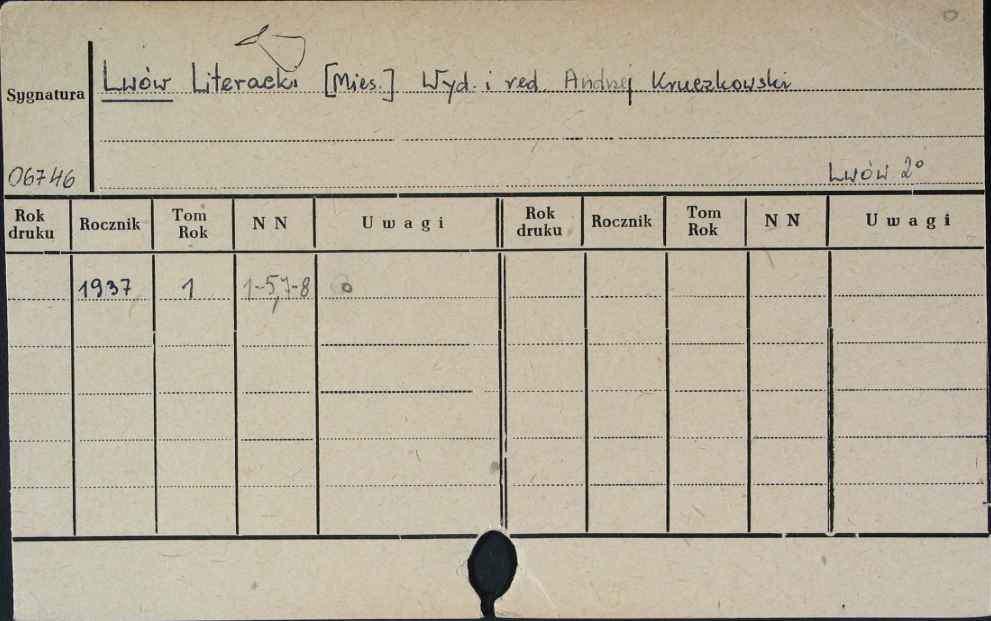 Lwów Literacki [Mies.] Wyd. i red. Andrzej Kruczkowski
Sygnatura
06746
Lwów 2°
Rok druku Rocznik Tom Rok N N Uwagi Rok druku Rocznik Tom Rok N N Uwagi
1937 1 1-5,7-8